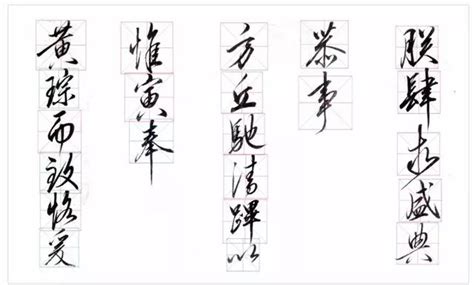 朕肆求盛典
恭事
方丘馳清蹕以
惟寅奉
黄琮而致恪爰